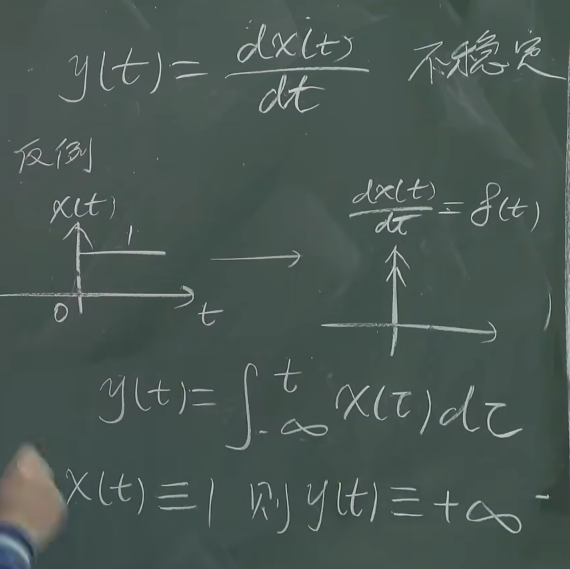 y(t)=dx(t)/dt 不稳定
反例
x(t)
1
0
t
dx(t)/dt=δ(t)
y(t)=∫_{-∞}^{t} x(τ)dτ
x(t)≡1 则 y(t)≡+∞